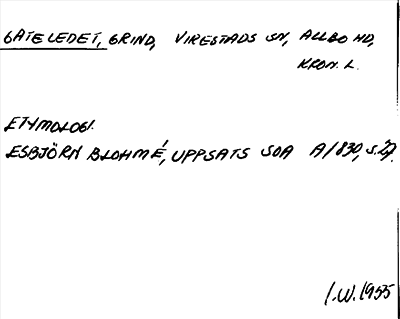 GÅTELEDET, GRIND, VIRESTADS SN, ALLBO HD,
KRON. L.
ETYMOLOGI.
ESBJÖRN BLOHMÉ, UPPSATS SOA A/830, S.27.
I.W. 1955